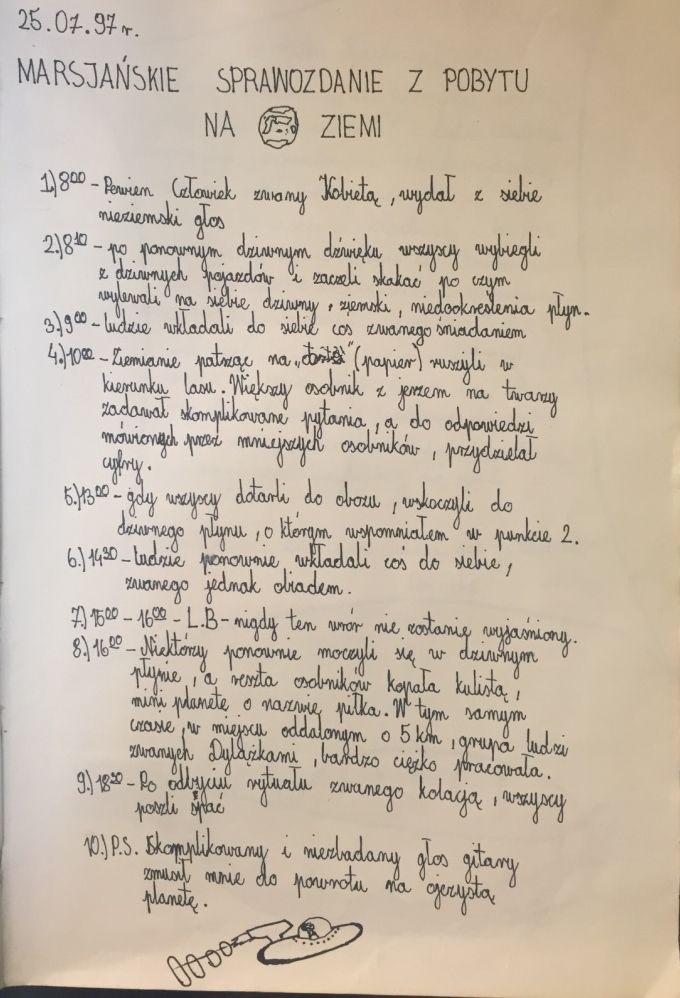 25.07.97r.
MARSJAŃSKIE SPRAWOZDANIE Z POBYTU
NA ZIEMI
1.) 8⁰⁰ - Pewien Człowiek zwany Kobietą, wydał z siebie
nieziemski głos
2.) 8¹⁰ - po ponownym dziwnym dźwięku wszyscy wybiegli
z dziwnych pojazdów i zaczeli skakać po czym
wylewali na siebie dziwny, ziemski, niedookreślenia płyn.
3.) 9⁰⁰ - ludzie wkładali do siebie cos zwanego śniadaniem
4.) 10⁰⁰ - Ziemianie patrząc na „ " (papier) ruszyli w
kierunku lasu. Większy osobnik z jeżem na twarzy
zadawał skomplikowane pytania, a do odpowiedzi
mówionych przez mniejszych osobników, przydzielał
cyfry.
5.) 13⁰⁰ - gdy wszyscy dotarli do obozu, wskoczyli do
dziwnego płynu, o którym wspomniałem w punkcie 2.
6.) 14³⁰ - ludzie ponownie wkładali coś do siebie,
zwanego jednak obiadem.
7.) 15⁰⁰ - 16⁰⁰ - L.B - nigdy ten wzór nie zostanie wyjaśniony.
8.) 16⁰⁰ - Niektórzy ponownie moczyli się w dziwnym
płynie, a reszta osobników kopała kulistą,
mini planetę o nazwie piłka. W tym samym
czasie, w miejscu oddalonym o 5 km, grupa ludzi
zwanych Dylążkami, bardzo ciężko pracowała.
9.) 18³⁰ - Po odbyciu rytuału zwanego kolacją, wszyscy
poszli spać
10.) P.S. Skomplikowany i niezbadany głos gitary
zmusił mnie do powrotu na ojczystą
planetę.